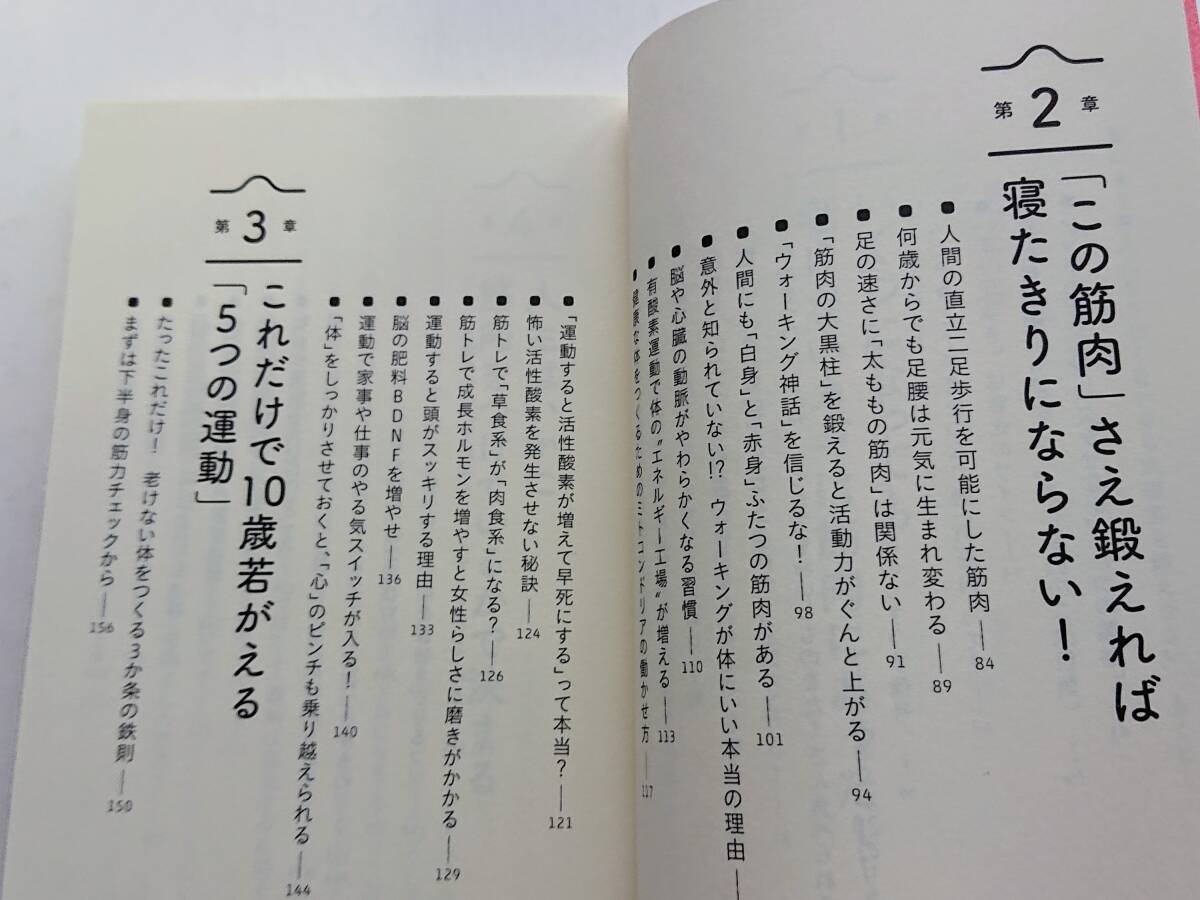 第2章
「この筋肉」さえ鍛えれば
寝たきりにならない！
■人間の直立二足歩行を可能にした筋肉―84
■何歳からでも足腰は元気に生まれ変わる―89
■足の速さに「太ももの筋肉」は関係ない―91
■「筋肉の大黒柱」を鍛えると活動力がぐんと上がる―94
■「ウォーキング神話」を信じるな！―98
■人間にも「白身」と「赤身」ふたつの筋肉がある―101
■意外と知られていない!?　ウォーキングが体にいい本当の理由―
■脳や心臓の動脈がやわらかくなる習慣―110
■有酸素運動で体の“エネルギー工場”が増える―113
■健康な体をつくるためのミトコンドリアの働かせ方―117
■「運動すると活性酸素が増えて早死にする」って本当？―121
■怖い活性酸素を発生させない秘訣―124
■筋トレで「草食系」が「肉食系」になる？―126
■筋トレで成長ホルモンを増やすと女性らしさに磨きがかかる―129
■運動すると頭がスッキリする理由―133
■脳の肥料BDNFを増やせ―136
■運動で家事や仕事のやる気スイッチが入る！―140
■「体」をしっかりさせておくと、「心」のピンチも乗り越えられる―144
第3章
これだけで10歳若がえる
「5つの運動」
■たったこれだけ！　老けない体をつくる3か条の鉄則―150
■まずは下半身の筋力チェックから―156